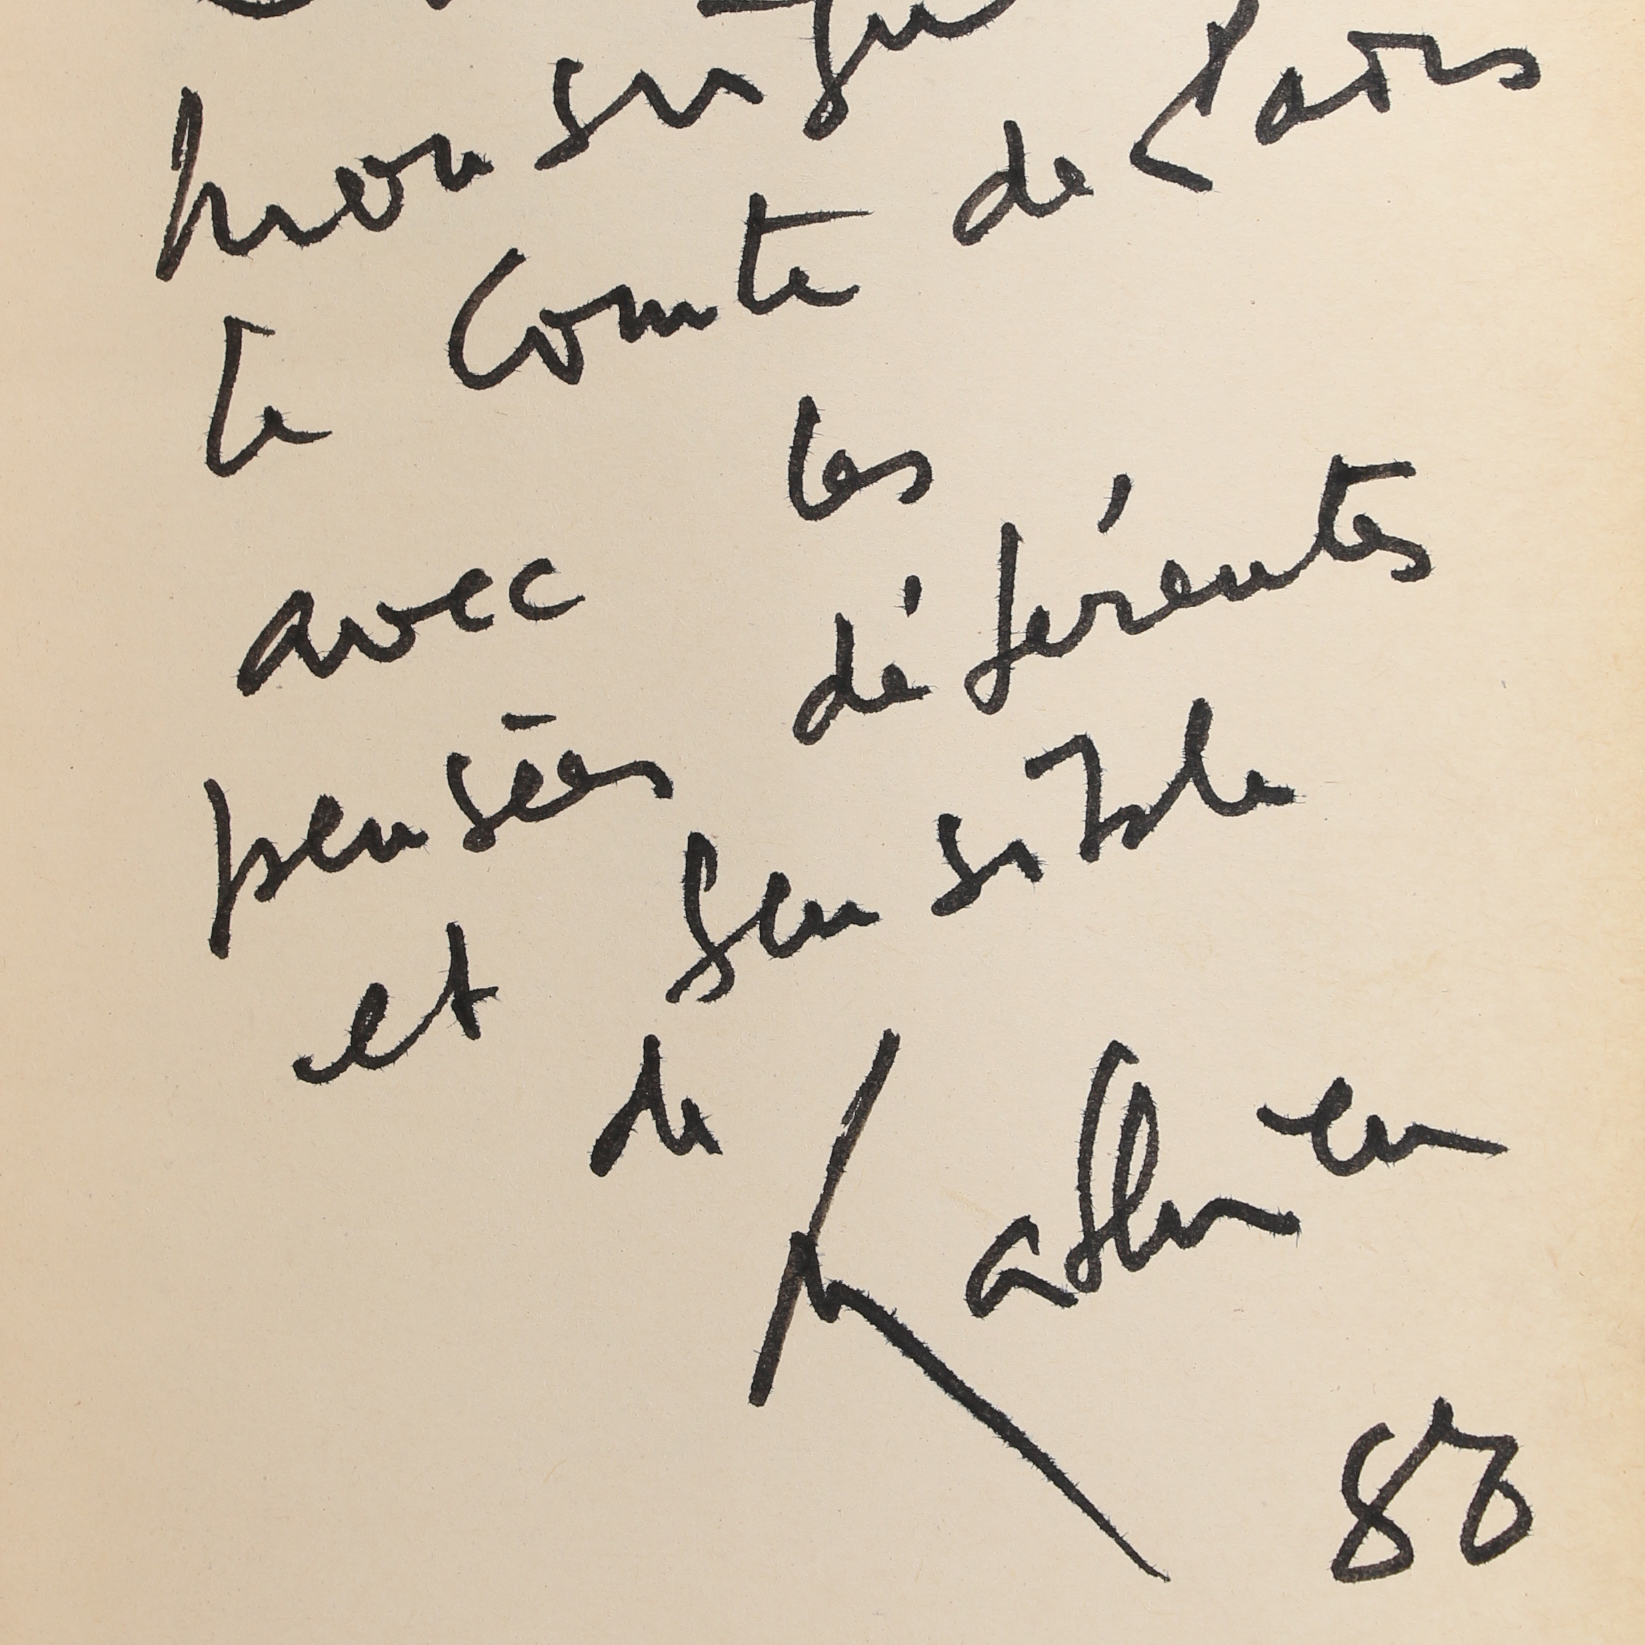 Monseigneur
le Comte de Paris
avec les
pensées déférentes
et sensible
de Kathleen